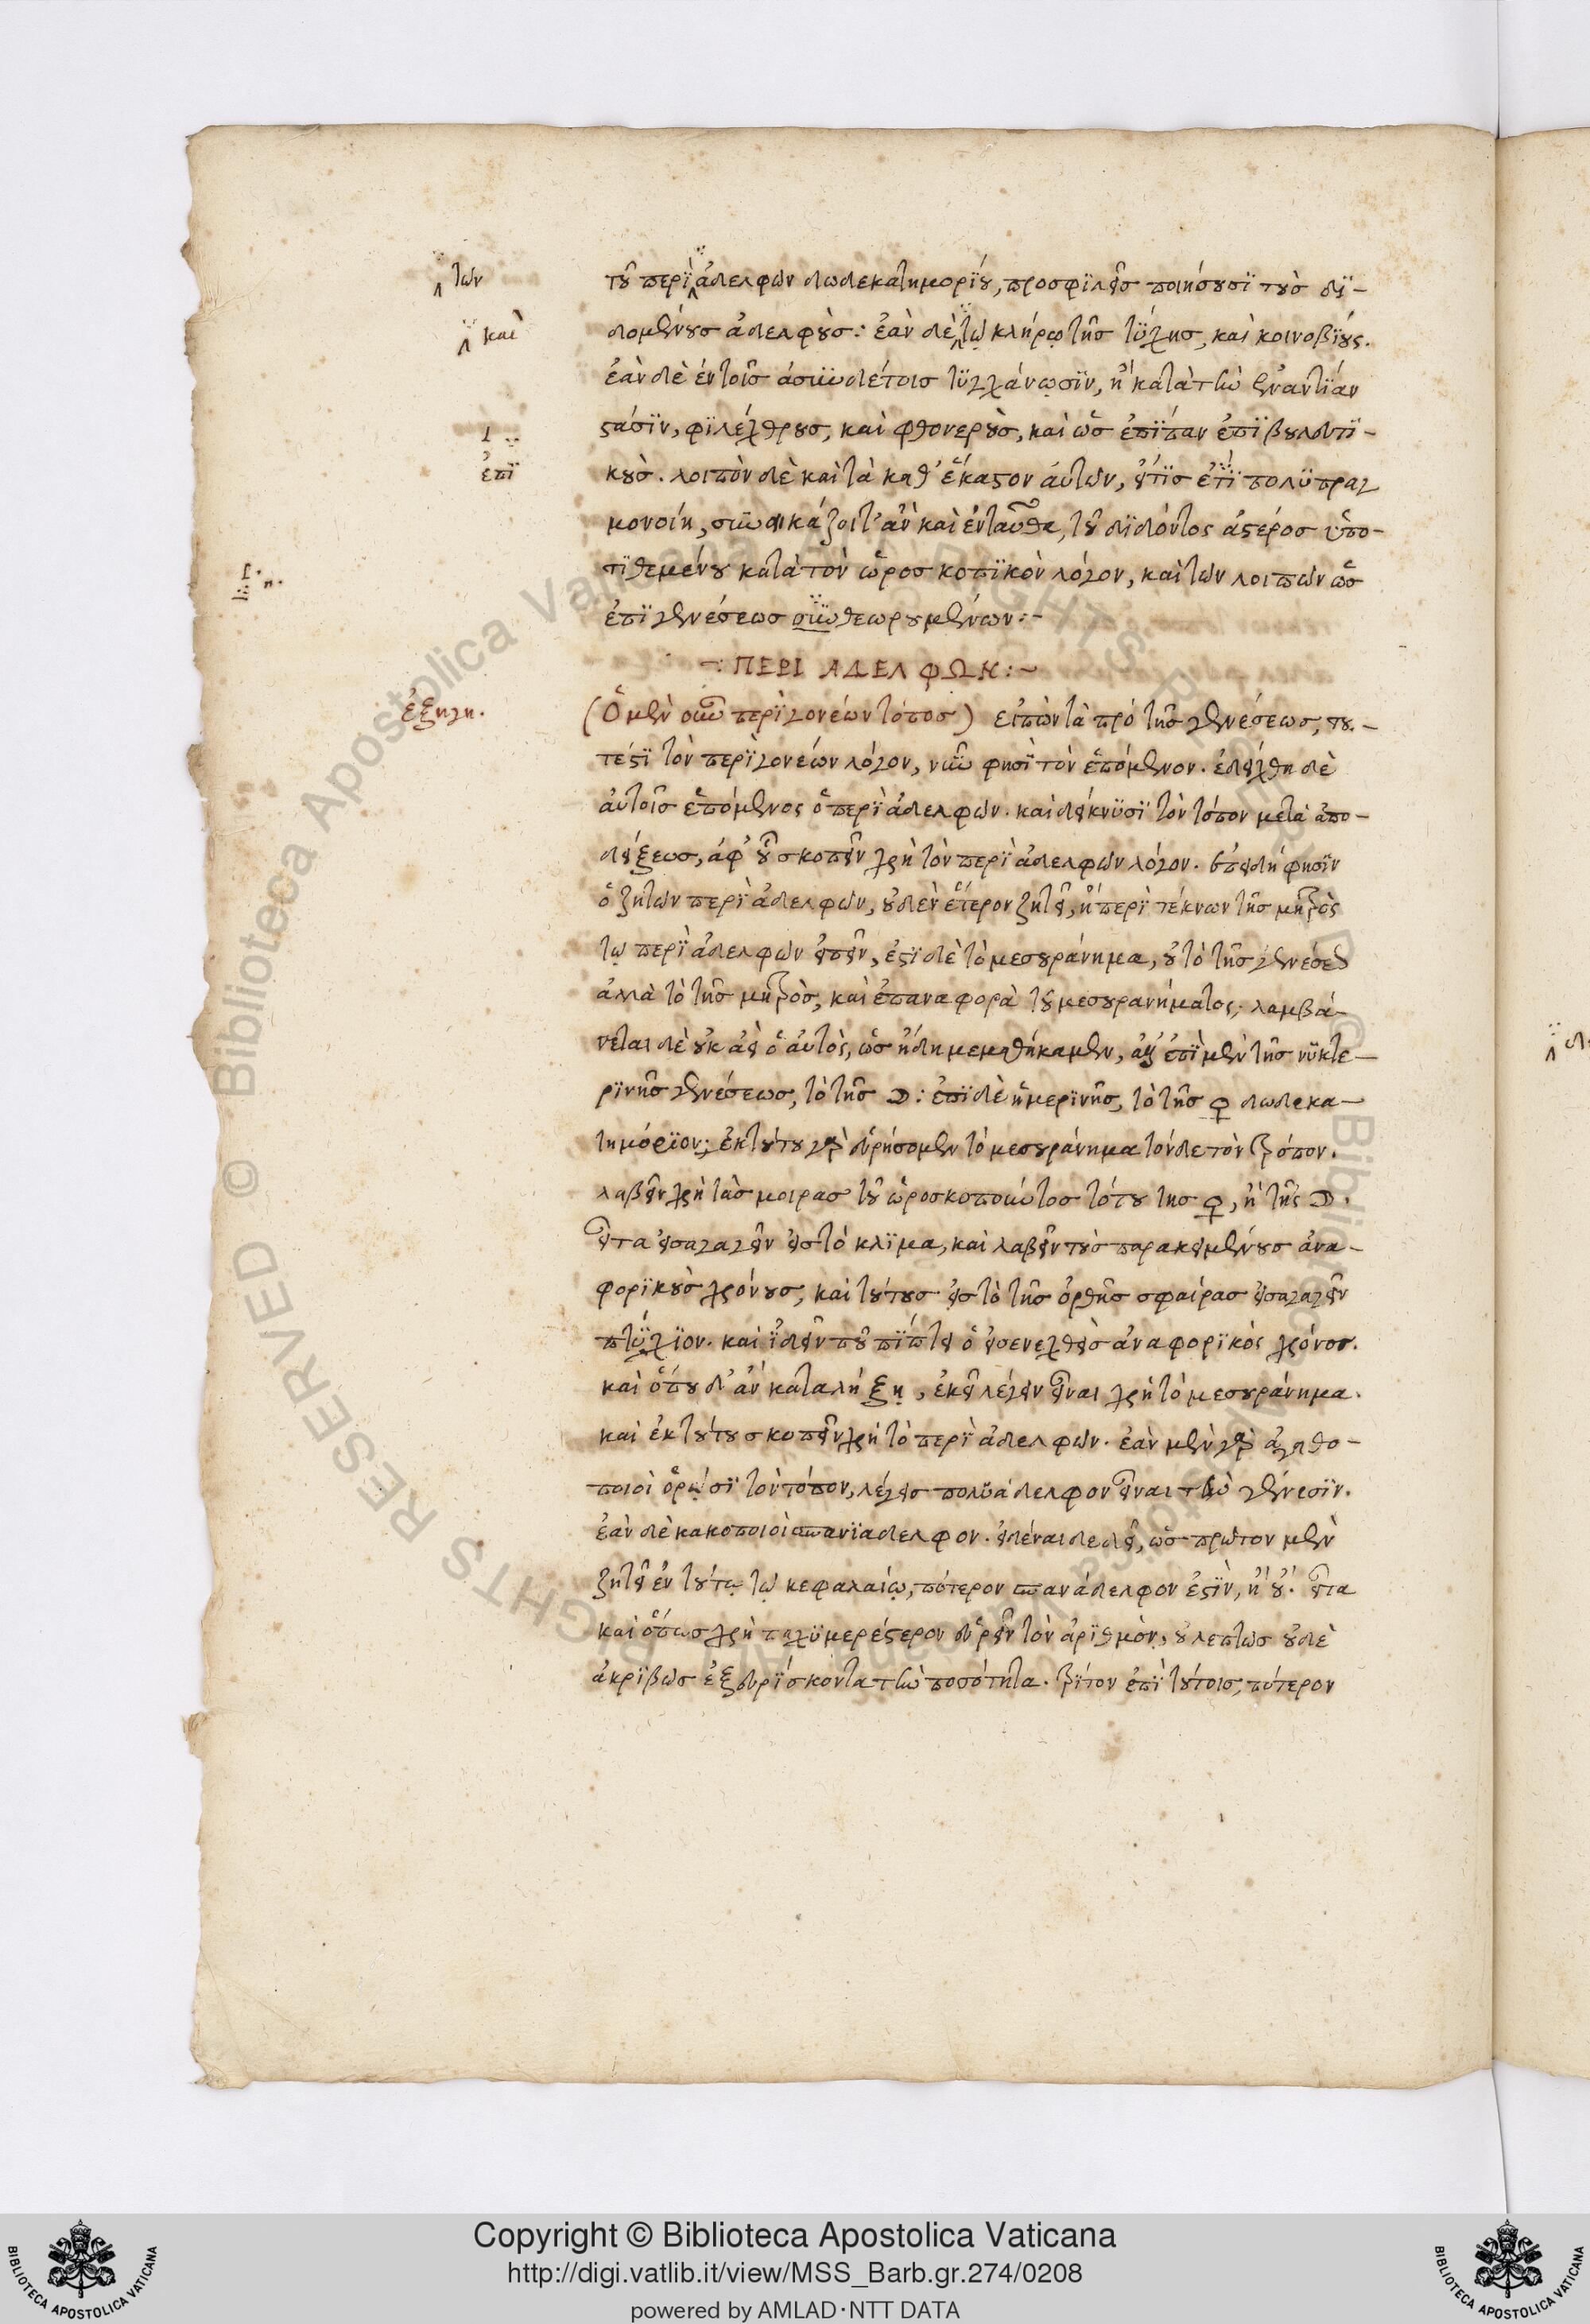 τῶν
τοῦ περὶ ἀδελφῶν δωδεκατημορίου, προσφιλεῖς ποιήσουσι τοὺς δι-
καὶ
δομένους ἀδελφούς: ἐὰν δὲ τῷ κλήρῳ τῆς τύχης, καὶ κοινοβίους.
ἐὰν δὲ ἐν τοῖς ἀσυνδέτοις τυγχάνωσιν, ἢ κατὰ τὴν ἐναντίαν
στάσιν, φιλέχθρους, καὶ φθονερούς, καὶ ὡς ἐπίπαν ἐπιβουλευτι-
ἐπὶ
κούς. λοιπὸν δὲ καὶ τὰ καθ' ἕκαστον αὐτῶν, εἴτις ἔτι πολυπραγ
μονοίη, συνεικάζοιτ' ἂν καὶ ἐνταῦθα, τοῦ διδόντος ἀστέρος ὑπο-
τιθεμένου κατὰ τὸν ὡροσκοπικὸν λόγον, καὶ τῶν λοιπῶν ὡς
ἐπὶ γενέσεως συνθεωρουμένων:-
-: ΠΕΡΙ ΑΔΕΛΦΩΝ:~
ἐξηγη.
(Ὁ μὲν οὖν περὶ γονέων τόπος) εἰπὼν τὰ πρὸ τῆς γενέσεως, του-
τέστι τὸν περὶ γονέων λόγον, νῦν φησὶ τὸν ἑπόμενον. ἐδείχθη δὲ
αὐτοῖς ἑπόμενος ὁ περὶ ἀδελφῶν. καὶ δείκνυσι τὸν τόπον μετὰ ἀπο-
δείξεως, ἀφ' οὗ σκοπεῖν χρὴ τὸν περὶ ἀδελφῶν λόγον. ἐπειδή φησιν
ὁ ζητῶν περὶ ἀδελφῶν, οὐδὲν ἕτερον ζητεῖ, ἢ περὶ τέκνων τῆς μητρὸς
τῳ περὶ ἀδελφῶν εἰπεῖν, ἐστὶ δὲ τὸ μεσουράνημα, οὐ τὸ τῆς γενέσεως
ἀλλὰ τὸ τῆς μητρὸς, καὶ ἐπαναφορὰ τοῦ μεσουρανήματος, λαμβά-
νεται δὲ οὐκ ἀεὶ ὁ αὐτὸς, ὡς ἤδη μεμαθήκαμεν, ἀλλ' ἐπὶ μὲν τῆς νυκτε-
ρινῆς γενέσεως, τὸ τῆς ☽: ἐπὶ δὲ ἡμερινῆς, τὸ τῆς ♀ δωδεκα-
τημόριον; ἐκ τούτου γὰρ εὑρήσομεν τὸ μεσουράνημα τόνδε τὸν τρόπον.
λαβεῖν χρὴ τὰς μοιρας τοῦ ὡροσκοποῦντος τόπου της ♀, ἢ τῆς ☽.
εἶτα εἰσαγαγεῖν εἰς τὸ κλίμα, καὶ λαβεῖν τοὺς παρακειμένους ἀνα-
φορικοὺς χρόνους, καὶ τούτους εἰς τὸ τῆς ὀρθῆς σφαίρας εἰσαγαγεῖν
πτύχιον. καὶ ἰδεῖν ποῦ πίπτει ὁ εἰσενεχθεὶς ἀναφορικὸς χρόνος.
καὶ ὅπου δ' ἂν καταλήξῃ, ἐκεῖ λέγειν εἶναι χρὴ τὸ μεσουράνημα.
καὶ ἐκ τούτου σκοπεῖν χρὴ τὸ περὶ ἀδελφῶν. ἐὰν μὲν γὰρ ἀγαθο-
ποιοὶ ὁρῶσι τὸν τόπον, λέγεις πολυάδελφον εἶναι τὴν γένεσιν.
ἐὰν δὲ κακοποιοὶ σπανιαδελφον. εἰδέναι δε δεῖ, ὡς πρῶτον μὲν
ζητεῖ ἐν τούτῳ τῷ κεφαλαίῳ, πότερον σπανάδελφον ἐστὶν, ἢ οὔ. εἶτα
καὶ ὅπως χρὴ παχυμερέστερον εὑρεῖν τὸν ἀριθμὸν, οὐ λεπτῶς οὐδὲ
ἀκριβῶς ἐξευρίσκοντα τὴν ποσότητα. τρίτον ἐπὶ τούτοις, πότερον
Copyright © Biblioteca Apostolica Vaticana
http://digi.vatlib.it/view/MSS_Barb.gr.274/0208
powered by AMLAD·NTT DATA